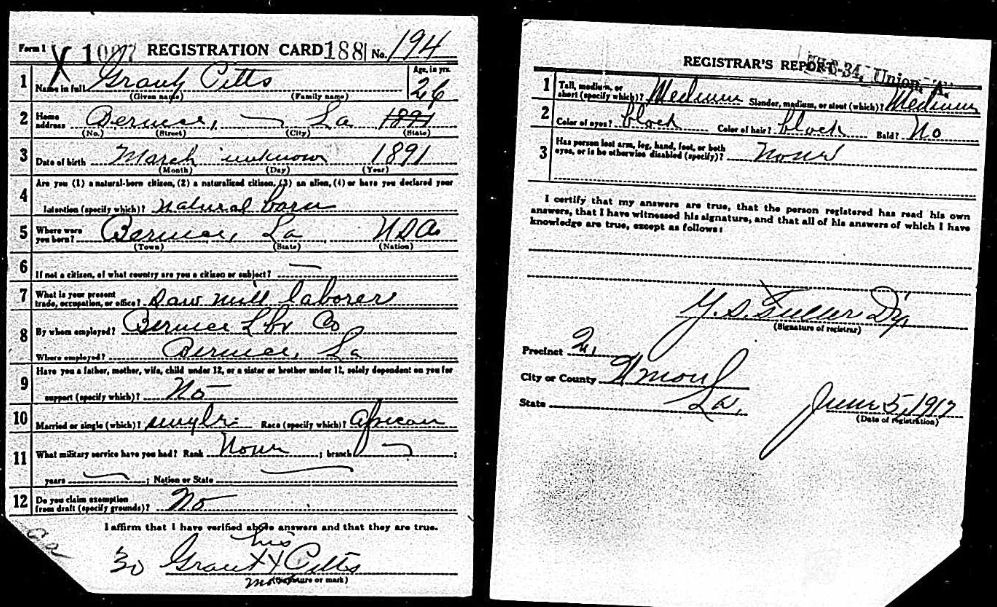 Form 1 X 1007 REGISTRATION CARD 1881 No. 194
1 Name in full Grant Pitts Age, in yrs. 26
(Given name) (Family name)
2 Home address Bernice, La 1891
(No.) (Street) (City) (State)
3 Date of birth March unknow 1891
(Month) (Day) (Year)
4 Are you (1) a natural-born citizen, (2) a naturalized citizen, (3) an alien, (4) or have you declared your
intention (specify which)? natural born
5 Where were you born? Bernice, La USA
(Town) (State) (Nation)
6 If not a citizen, of what country are you a citizen or subject? —
7 What is your present trade, occupation, or office? Saw mill laborer
8 By whom employed? Bernice Lbr Co
Where employed? Bernice, La
9 Have you a father, mother, wife, child under 12, or a sister or brother under 12, solely dependent on you for
support (specify which)? No
10 Married or single (which)? Race (specify which)? African
11 What military service have you had? Rank None ; branch — ;
years — ; Nation or State —
12 Do you claim exemption from draft (specify grounds)? No
I affirm that I have verified above answers and that they are true.
his
30 Grant X Pitts
mark (Signature or mark)
REGISTRAR'S REPORT
1 Tall, medium, or short (specify which)? Medium Slender, medium, or stout (which)? Medium
2 Color of eyes? black Color of hair? black Bald? No
3 Has person lost arm, leg, hand, foot, or both eyes, or is he otherwise disabled (specify)? None
I certify that my answers are true, that the person registered has read his own
answers, that I have witnessed his signature, and that all of his answers of which I have
knowledge are true, except as follows:
(Signature of registrar)
Precinct 2,
City or County
State La. June 5, 1917
(Date of registration)